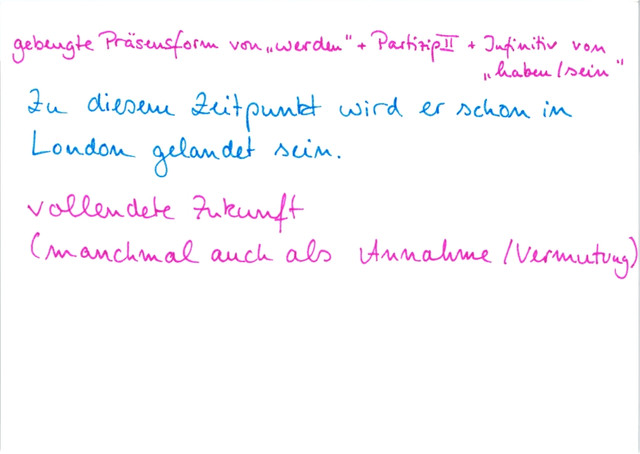 gebeugte Präsensform von „werden" + Partizip II + Infinitiv von
„haben/sein"
Zu diesem Zeitpunkt wird er schon in
London gelandet sein.
vollendete Zukunft
(manchmal auch als Annahme/Vermutung)